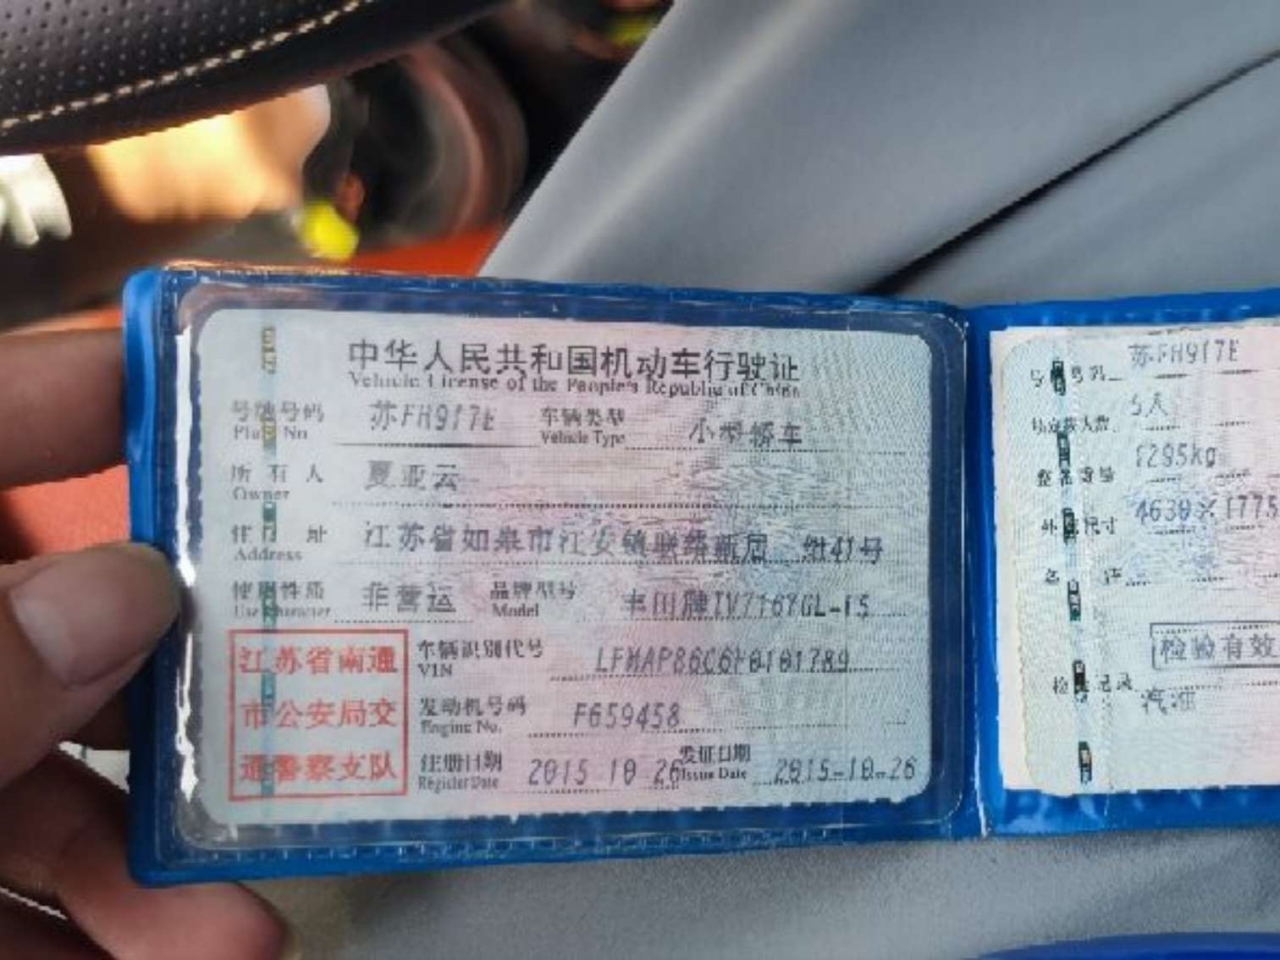 中华人民共和国机动车行驶证
Vehicle License of the People's Republic of China
号牌号码 苏FH917E 车辆类型 小型轿车
Plate No Vehicle Type
所有人 夏亚云
Owner
住址 江苏省如皋市江安镇联络新居 组41号
Address
使用性质 非营运 品牌型号 丰田牌
Use Character Model
江苏省南通
市公安局交
通警察支队
车辆识别代号
VIN
发动机号码 F659458
Engine No.
注册日期 2015 10 26 发证日期 2015-10-26
Register Date Issue Date
号牌号码 苏FH917E
5人
1295kg
外廓尺寸 4630×1775
检验有效
检验记录
汽油